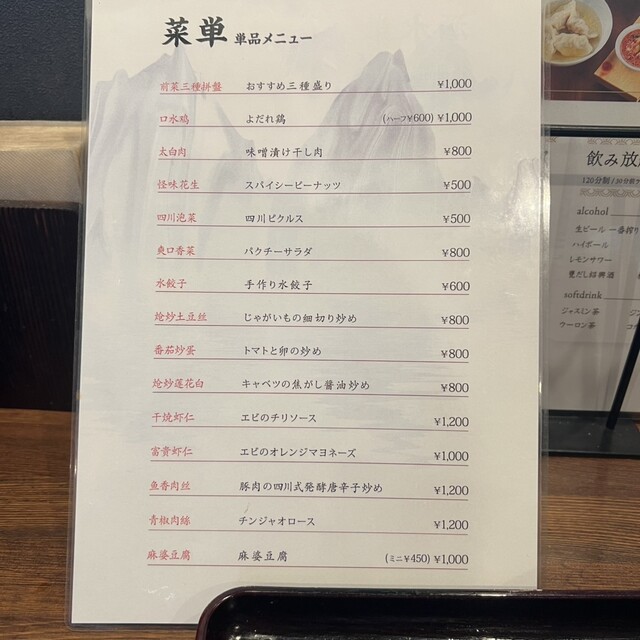 菜単 単品メニュー
前菜三種拼盤 おすすめ三種盛り ¥1,000
口水鶏 よだれ鶏 (ハーフ¥600) ¥1,000
太白肉 味噌漬け干し肉 ¥800
怪味花生 スパイシーピーナッツ ¥500
四川泡菜 四川ピクルス ¥500
爽口香菜 パクチーサラダ ¥800
水餃子 手作り水餃子 ¥600
炝炒土豆丝 じゃがいもの細切り炒め ¥800
番茄炒蛋 トマトと卵の炒め ¥800
炝炒莲花白 キャベツの焦がし醤油炒め ¥800
干焼虾仁 エビのチリソース ¥1,200
富貴虾仁 エビのオレンジマヨネーズ ¥1,000
鱼香肉丝 豚肉の四川式発酵唐辛子炒め ¥1,200
青椒肉絲 チンジャオロース ¥1,200
麻婆豆腐 麻婆豆腐 (ミニ¥450) ¥1,000
飲み放
120分制 / 30分前
alcohol
生ビール 一番搾り
ハイボール
レモンサワー
甕だし紹興酒
softdrink
ジャスミン茶
ウーロン茶